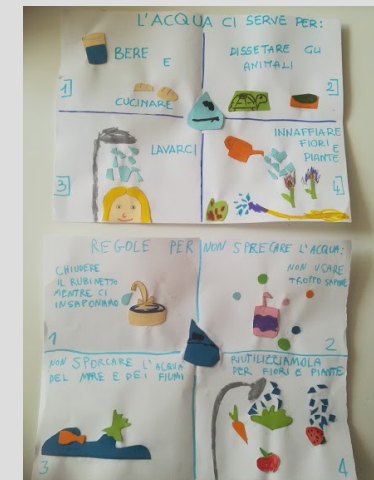 L'ACQUA CI SERVE PER:
BERE E
CUCINARE
1
DISSETARE GLI
ANIMALI
2
LAVARCI
3
INNAFFIARE
FIORI E
PIANTE
4
REGOLE PER NON SPRECARE L'ACQUA:
CHIUDERE
IL RUBINETTO
MENTRE CI
INSAPONIAMO
1
NON USARE
TROPPO SAPONE
2
NON SPORCARE L'ACQUA
DEL MARE E DEI FIUMI
3
RIUTILIZZIAMOLA
PER FIORI E PIANTE
4